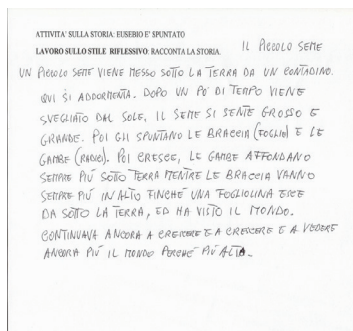 ATTIVITA' SULLA STORIA: EUSEBIO E' SPUNTATO
IL PICCOLO SEME
LAVORO SULLO STILE RIFLESSIVO: RACCONTA LA STORIA.
UN PICCOLO SEME VIENE MESSO SOTTO LA TERRA DA UN CONTADINO.
QUI SI ADDORMENTA. DOPO UN PO' DI TEMPO VIENE
SVEGLIATO DAL SOLE. IL SEME SI SENTE GROSSO E
GRANDE. POI GLI SPUNTANO LE BRACCIA (FOGLIO) E LE
GAMBE (RADICI). POI CRESCE, LE GAMBE AFFONDANO
SEMPRE PIÙ SOTTO TERRA MENTRE LE BRACCIA VANNO
SEMPRE PIÙ IN ALTO FINCHÈ UNA FOGLIOLINA ESCE
DA SOTTO LA TERRA, ED HA VISTO IL MONDO.
CONTINUAVA ANCORA A CRESCERE E A CRESCERE E A VEDERE
ANCORA PIÙ IL MONDO PERCHÈ PIÙ ALTA.